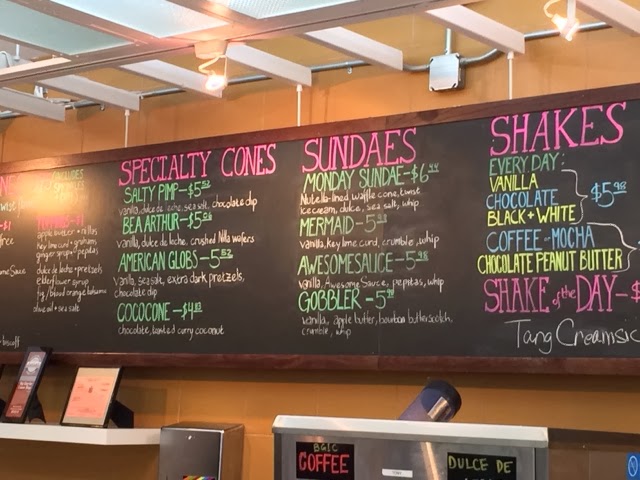 SPECIALTY CONES
SALTY PIMP-$5
vanilla, dulce de leche, sea salt, chocolate dip
BEA ARTHUR-$5
vanilla, dulce de leche, crushed Nilla wafers
AMERICAN GLOBS-5
vanilla, sea salt, extra dark pretzels,
chocolate dip
COCOCONE-$4
chocolate, toasted curry coconut
SUNDAES
MONDAY SUNDAE-$6
Nutella-lined waffle cone, twist
ice cream, dulce, sea salt, whip
MERMAID-5
vanilla, key lime curd, crumble, whip
AWESOMESAUCE-5
vanilla, Awesome Sauce, pepitas, whip
GOBBLER-5
vanilla, apple butter, bourbon butterscotch,
crumble, whip
SHAKES
EVERY DAY:
VANILLA
CHOCOLATE
BLACK+WHITE
$5
COFFEE or MOCHA
CHOCOLATE PEANUT BUTTER
SHAKE of the DAY-$
Tang Creamsic
apple butter + nillas
key lime curd + grahams
dulce de leche + pretzels
elderflower syrup
olive oil + sea salt
biscoff
BGIC
COFFEE
DULCE DE